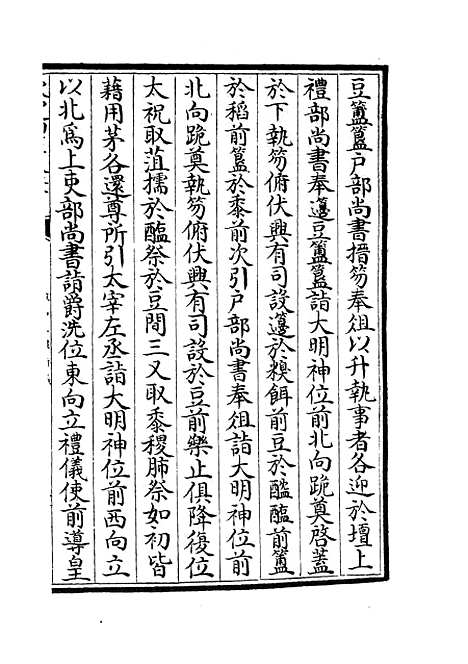 豆簠簋戶部尚書搢笏奉俎以升執事者各迎於壇上
禮部尚書奉籩豆簠簋詣大明神位前北向跪奠啓蓋
於下執笏俯伏興有司設籩於糗餌前豆於醓醢前簠
於稻前簋於黍前次引戶部尚書奉俎詣大明神位前
北向跪奠執笏俯伏興有司設於豆前樂止俱降復位
太祝取菹擩於醢祭於豆間三又取黍稷肺祭如初皆
藉用茅各還尊所引太宰左丞詣大明神位前西向立
以北爲上吏部尚書詣爵洗位東向立禮儀使前導皇